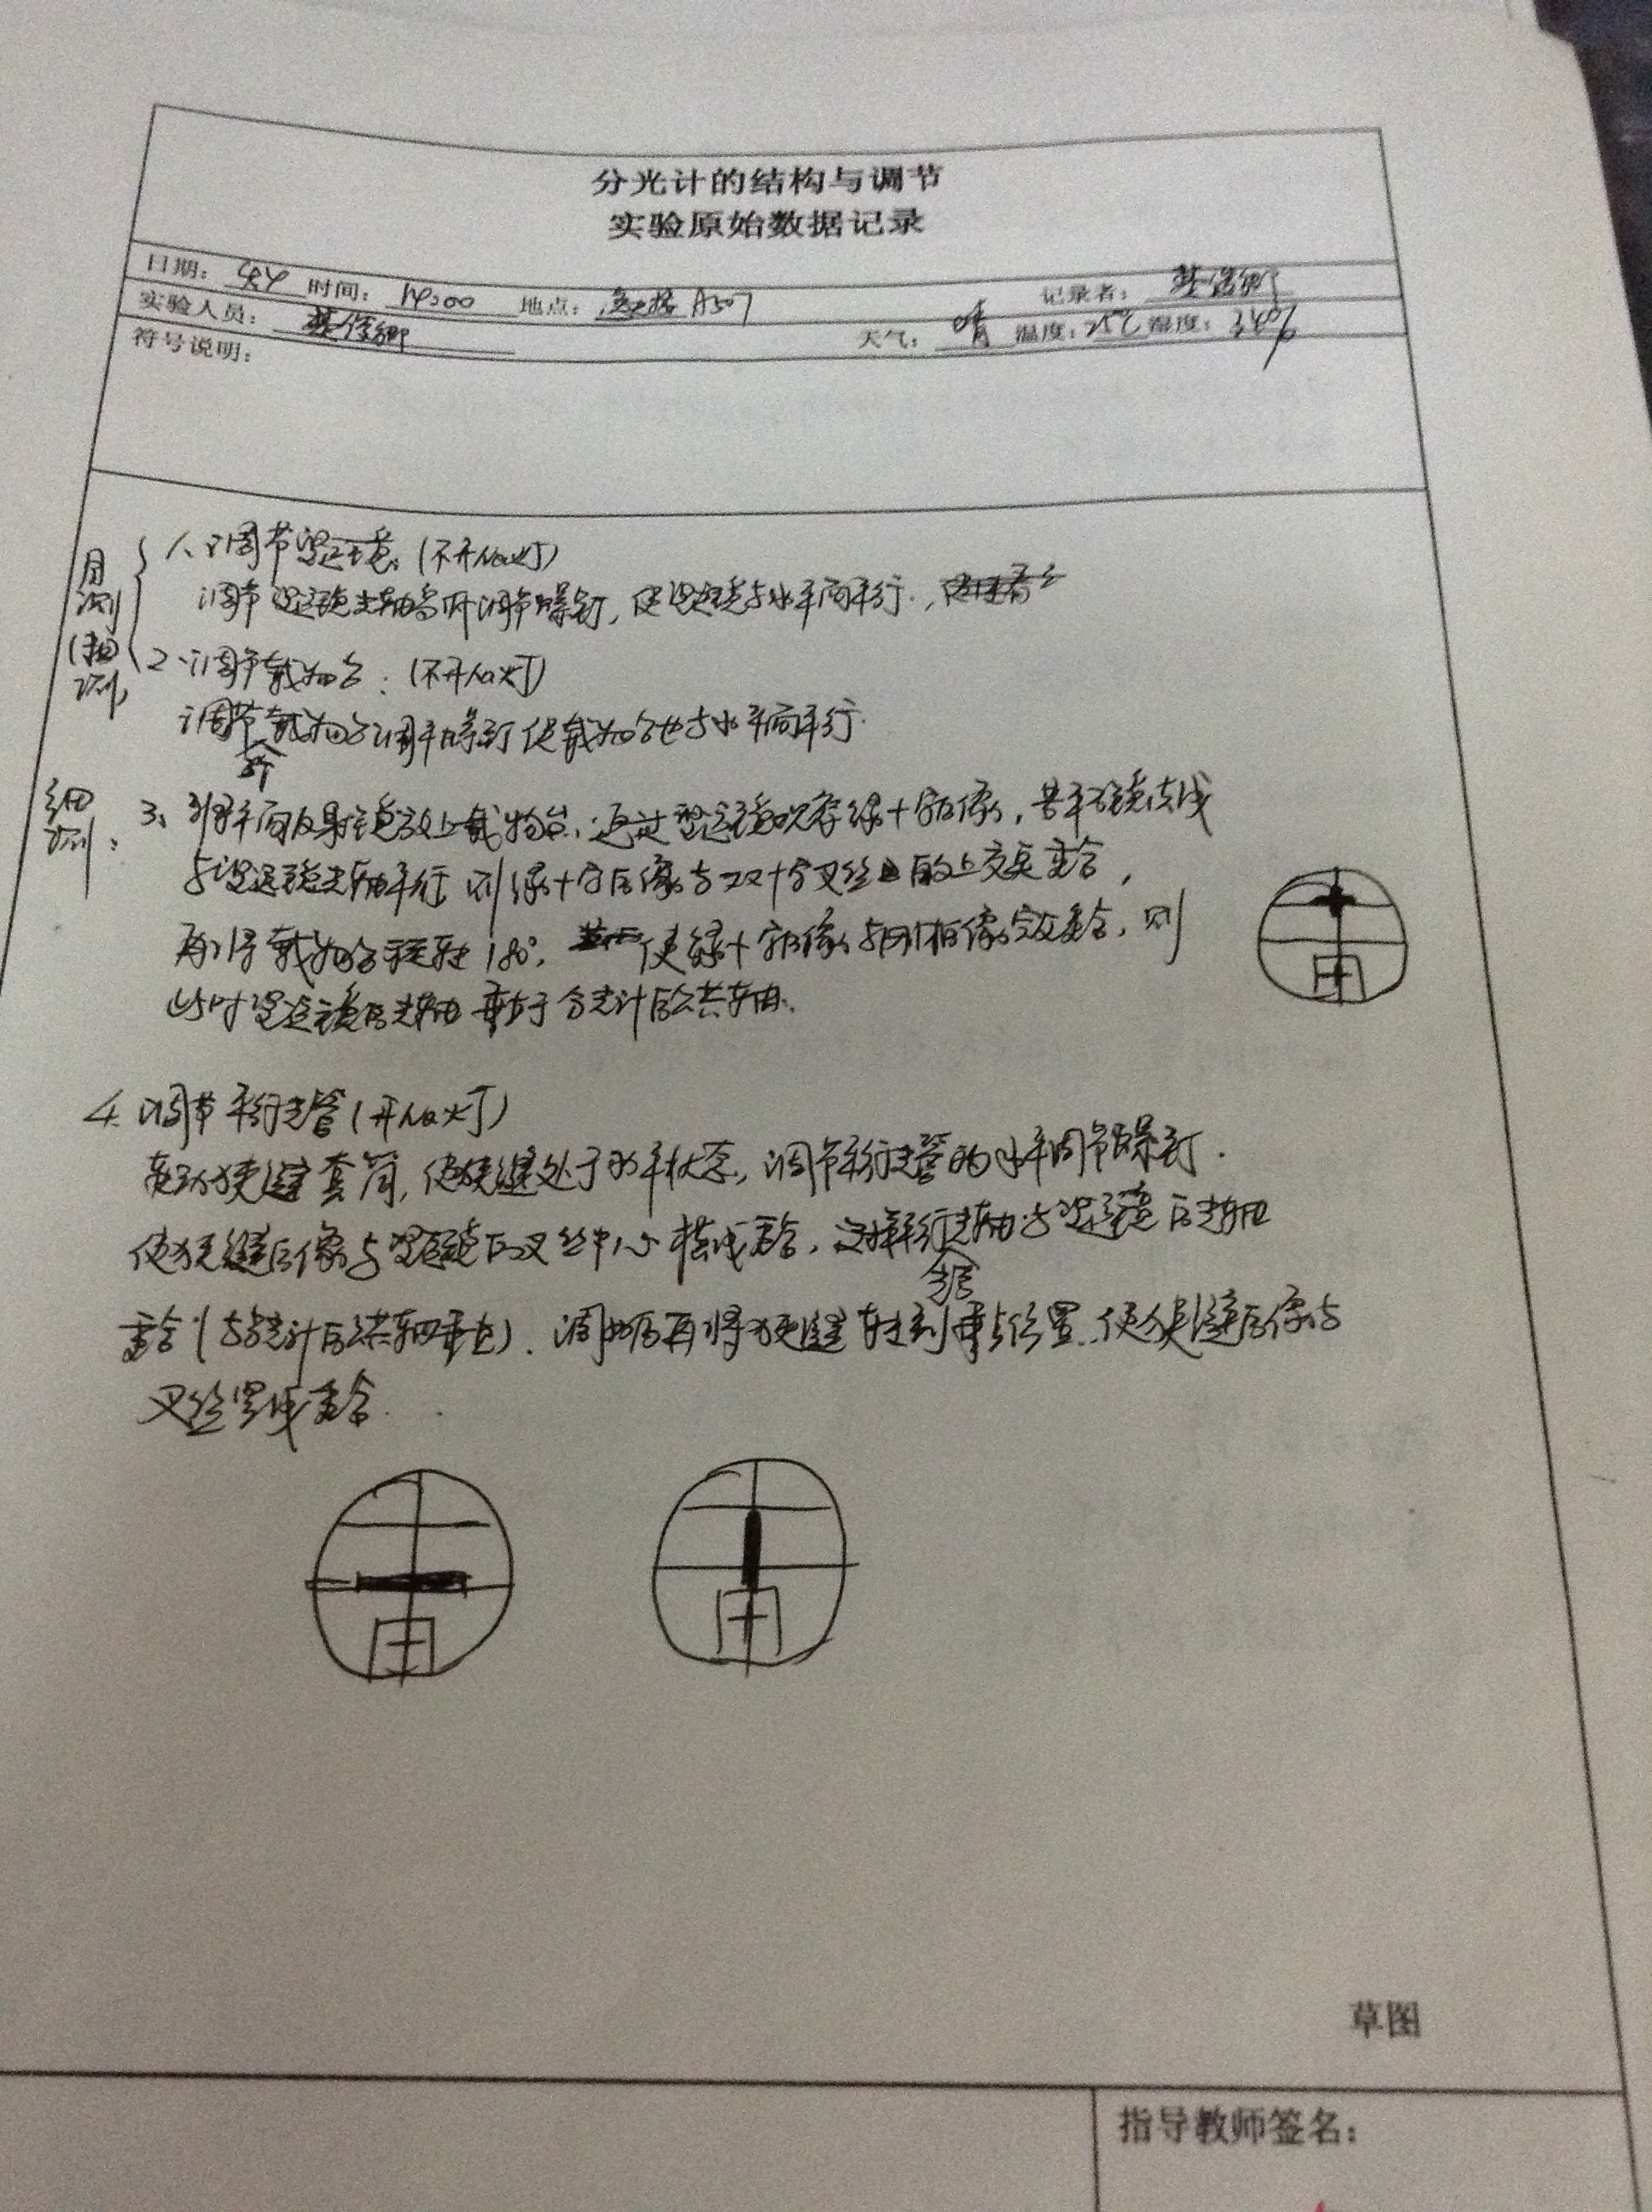 分光计的结构与调节
实验原始数据记录
日期： 时间：14:00 地点： A507 记录者：
实验人员： 天气：晴 温度：25℃ 湿度：
符号说明：
目测(粗测)
1、调节望远镜：(不开Na灯)
调节望远镜光轴高低调节螺钉，使望远镜与水平面平行.，
2、调节载物台：(不开Na灯)
调节载物台调平螺钉使载物台也与水平面平行.
细测：
3、将平面反射镜放上载物台，通过望远镜观察绿十字的像，若平面镜法线
与望远镜光轴平行，则绿十字的像与双十字叉丝的上交点重合，
再将载物台旋转180°，使绿十字的像与刚才的像完全重合，则
此时望远镜的光轴垂直于分光计的公共轴.
4. 调节平行光管(开Na灯)
转动狭缝套筒，使狭缝处于水平状态，调节平行光管的水平调节螺钉.
使狭缝的像与望远镜的叉丝中心横线重合，这样平行光轴与望远镜的光轴
重合(与分光计的公共轴垂直). 调好后再将狭缝转到垂直位置，使狭缝的像与
叉丝竖线重合.
草图
指导教师签名：